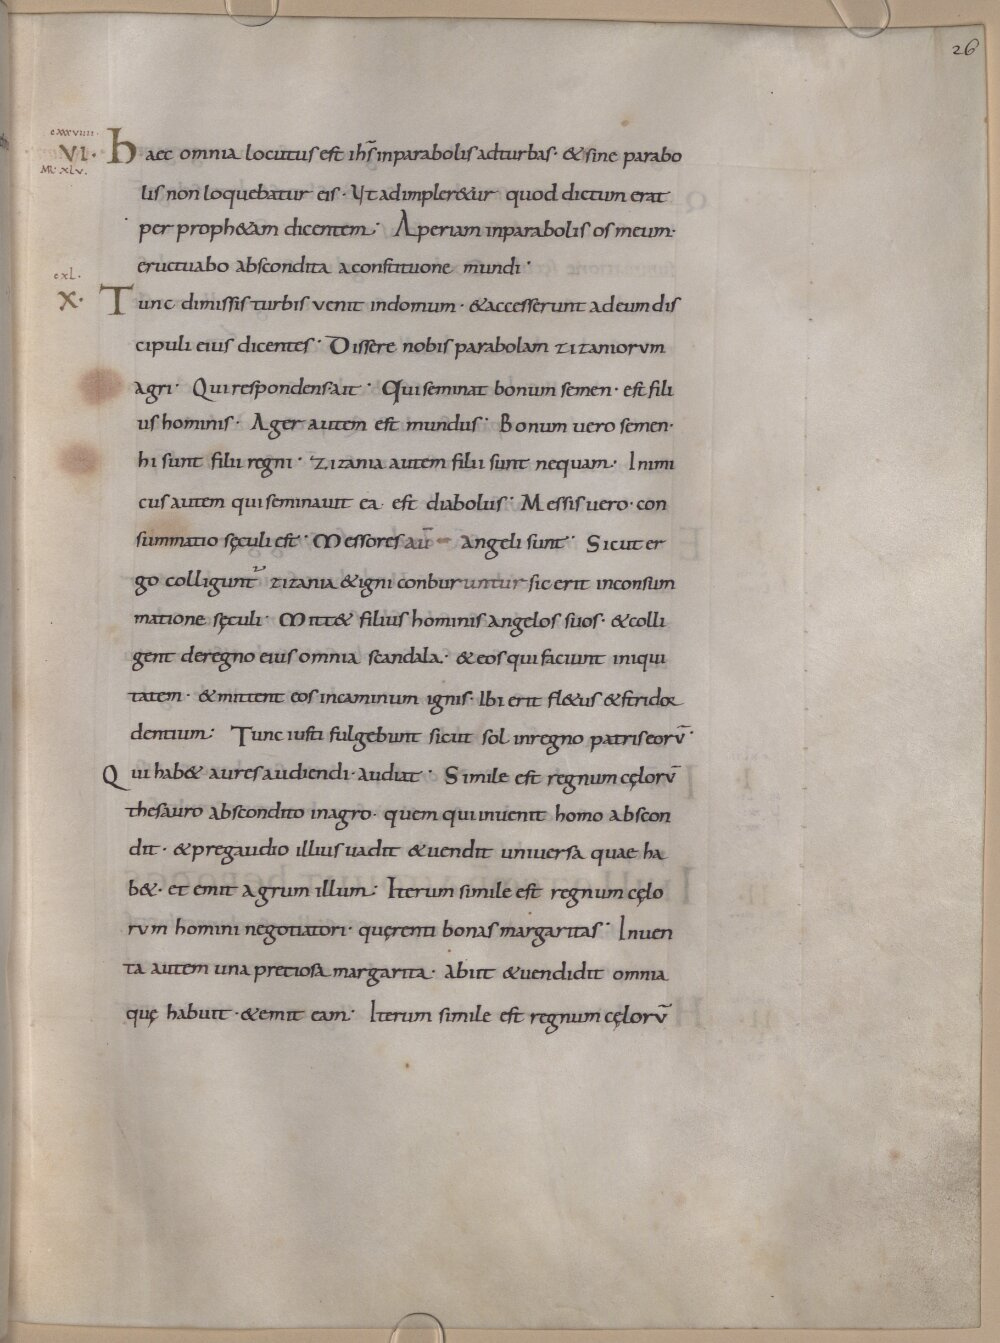 26
cxxxviiii.
VI·
MR· xlv.
Haec omnia locutus est ihs̄ inparabolis adturbas· &sine parabo
lis non loquebatur eis· Vt adimpler&ur quod dictum erat
per proph&am dicentem· Aperiam inparabolis os meum·
eructuabo abscondita aconstitutione mundi·
cxl.
X·
Tunc dimissis turbis venit indomum· &accesserunt adeum dis
cipuli eius dicentes· Dissere nobis parabolam zizaniorum
agri· Qui respondens ait· Qui seminat bonum semen· est fili
us hominis· Ager autem est mundus· Bonum uero semen·
hi sunt filii regni· Zizania autem filii sunt nequam· Inimi
cus autem qui seminauit ea· est diabolus· Messis uero· con
summatio sęculi est· Messores aūt Angeli sunt· Sicut er
go colligunt zizania &igni comburuntur sic erit inconsum
matione sęculi· Mitt& filius hominis angelos suos· &colli
gent deregno eius omnia scandala· &eos qui faciunt iniqui
tatem· &mittent eos incaminum ignis· Ibi erit fl&us &stridor
dentium· Tunc iusti fulgebunt sicut sol inregno patris eorū·
Qui hab& aures audiendi· audiat· Simile est regnum cęlorū
thesauro abscondito inagro· quem qui inuenit homo abscon
dit· &pregaudio illius uadit &uendit uniuersa quae ha
b&· et emit agrum illum· Iterum simile est regnum cęlo
rum homini negotiatori· quęrenti bonas margaritas· Inuen
ta autem una preciosa margarita· abiit &uendidit omnia
quę habuit· &emit eam· Iterum simile est regnum cęlorū